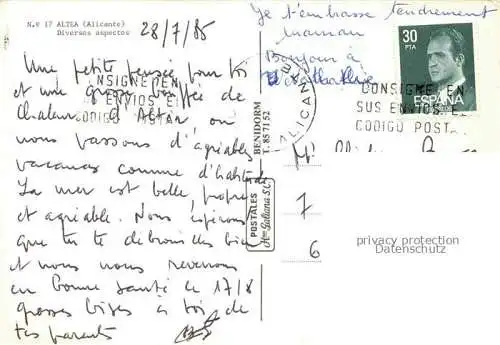 N.º 17 ALTEA (Alicante)
Diversos aspectos
28/7/85
Je t'embrasse tendrement
Maman
Bonjour à
30
PTA
ESPAÑA
CONSIGNE EN
SUS ENVIOS EL
CODIGO POSTAL
NSIGNE EN
ENVIOS E
CODIGO POSTAL
ALICAN
Une petite pensée pour toi
et une grosse bouffée de
chaleur d'Altea où
nous passons d'agréables
vacances comme d'habitude
La mer est belle, propre
et agréable. Nous espérons
que tu te débrouilles bien
et nous nous reverrons
en bonne santé le 17/8
grosses bises à toi de
tes parents
BENIDORM
T. 85 71 52
POSTALES
Hnos Galiana S.C.
Mr
7
6
privacy protection
Datenschutz